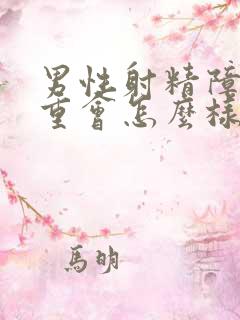 男性射精障
重會怎麼樣
馬明